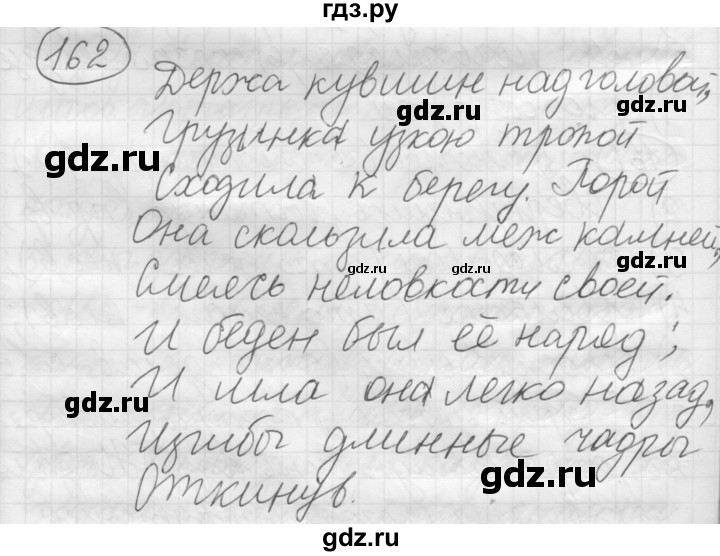 гдз.ру
162
Держа кувшин над головой,
gdz.ru
Грузинка узкою тропой
gdz.ru
Сходила к берегу. Порой
Она скользила меж камней,
gdz.ru
Смеясь неловкости своей.
gdz.ru
И беден был её наряд;
И шла она легко назад,
gdz.ru
Изгибы длинные чадры
gdz.ru
Откинув.
gdz.ru